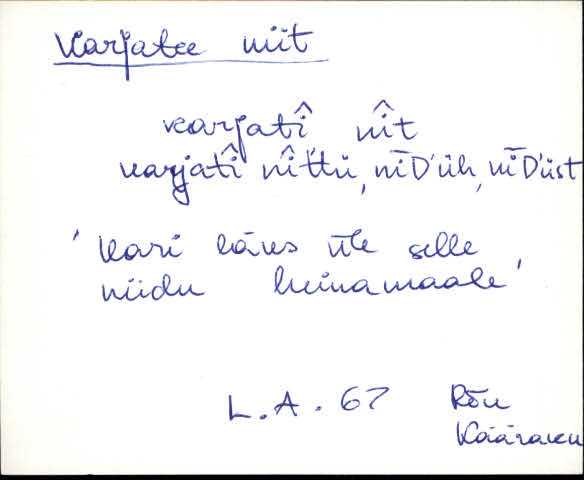 Karjatee niit
karjatî nît
karjatî nîttü, nīD'üh, nīD'üst
' kari käes üle selle
niidu heinamaale '
L.A. 67 Rõu
Kääraku